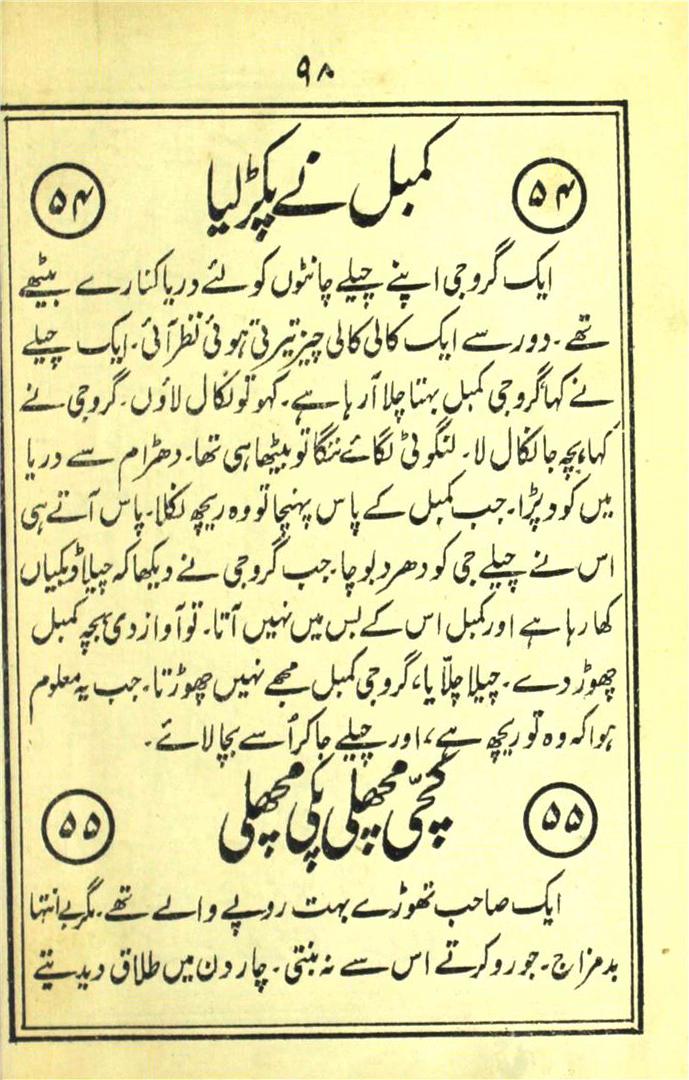 ۹۸
۵۴ کمبل نے پکڑ لیا ۵۴
ایک گروجی اپنے چیلے چانٹوں کو لئے دریا کنارے بیٹھے
تھے۔ دور سے ایک کالی کالی چیز تیرتی ہوئی نظر آئی۔ ایک چیلے
نے کہا، گروجی کمبل بہتا چلا آرہا ہے۔ کہو تو نکال لاؤں۔ گروجی نے
کہا، بچہ جا نکال لا۔ لنگوٹی لگائے ننگا تو بیٹھا ہی تھا۔ دھڑام سے دریا
میں کود پڑا۔ جب کمبل کے پاس پہنچا تو وہ ریچھ نکلا۔ پاس آتے ہی
اس نے چیلے جی کو دھر دبوچا۔ جب گروجی نے دیکھا کہ چیلا ڈبکیاں
کھا رہا ہے اور کمبل اس کے بس میں نہیں آتا۔ تو آواز دی، بچہ کمبل
چھوڑ دے۔ چیلا چلّایا، گروجی کمبل مجھے نہیں چھوڑتا۔ جب یہ معلوم
ہوا کہ وہ تو ریچھ ہے، اور چیلے جاکر اُسے بچا لائے۔
۵۵ کچّی مچھلی پکی مچھلی ۵۵
ایک صاحب تھوڑے بہت روپے والے تھے۔ مگر بے انتہا
بدمزاج۔ جورو کرتے اس سے نہ بنتی۔ چار دن میں طلاق دیدیتے